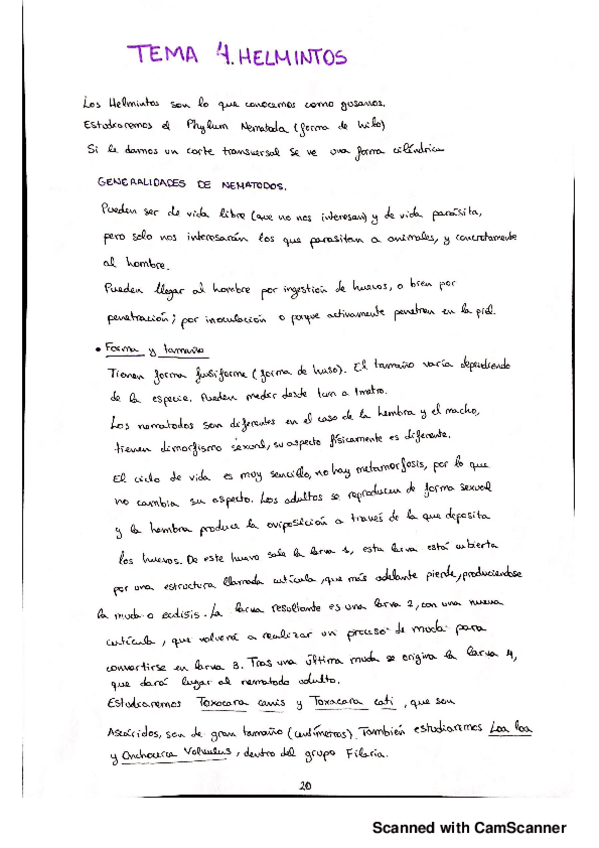 TEMA 4. HELMINTOS
Los Helmintos son lo que conocemos como gusanos.
Estudiaremos el Phylum Nematoda (forma de hilo)
Si le damos un corte transversal se ve una forma cilíndrica
GENERALIDADES DE NEMATODOS.
Pueden ser de vida libre (que no nos interesan) y de vida parásita,
pero solo nos interesarán los que parasitan a animales, y concretamente
al hombre.
Pueden llegar al hombre por ingestión de huevos, o bien por
penetración; por inoculación o porque activamente penetren en la piel.
• Forma y tamaño
Tienen forma fusiforme (forma de huso). El tamaño varía dependiendo
de la especie. Pueden medir desde 1mm a 1metro.
Los nematodos son diferentes en el caso de la hembra y el macho,
tienen dimorfismo sexual, su aspecto físicamente es diferente.
El ciclo de vida es muy sencillo, no hay metamorfosis, por lo que
no cambia su aspecto. Los adultos se reproducen de forma sexual
y la hembra produce la oviposición a través de la que deposita
los huevos. De este huevo sale la larva 1, esta larva está cubierta
por una estructura llamada cutícula, que más adelante pierde, produciendose
la muda o ecdisis. La larva resultante es una larva 2, con una nueva
cutícula, que volverá a realizar un proceso de muda para
convertirse en larva 3. Tras una última muda se origina la larva 4,
que dará lugar al nematodo adulto.
Estudiaremos Toxocara canis y Toxacara cati, que son
Ascáridos, son de gran tamaño (centímetros). También estudiaremos Loa loa
y Onchocerca Volvulus, dentro del grupo Filaria.
20
Scanned with CamScanner